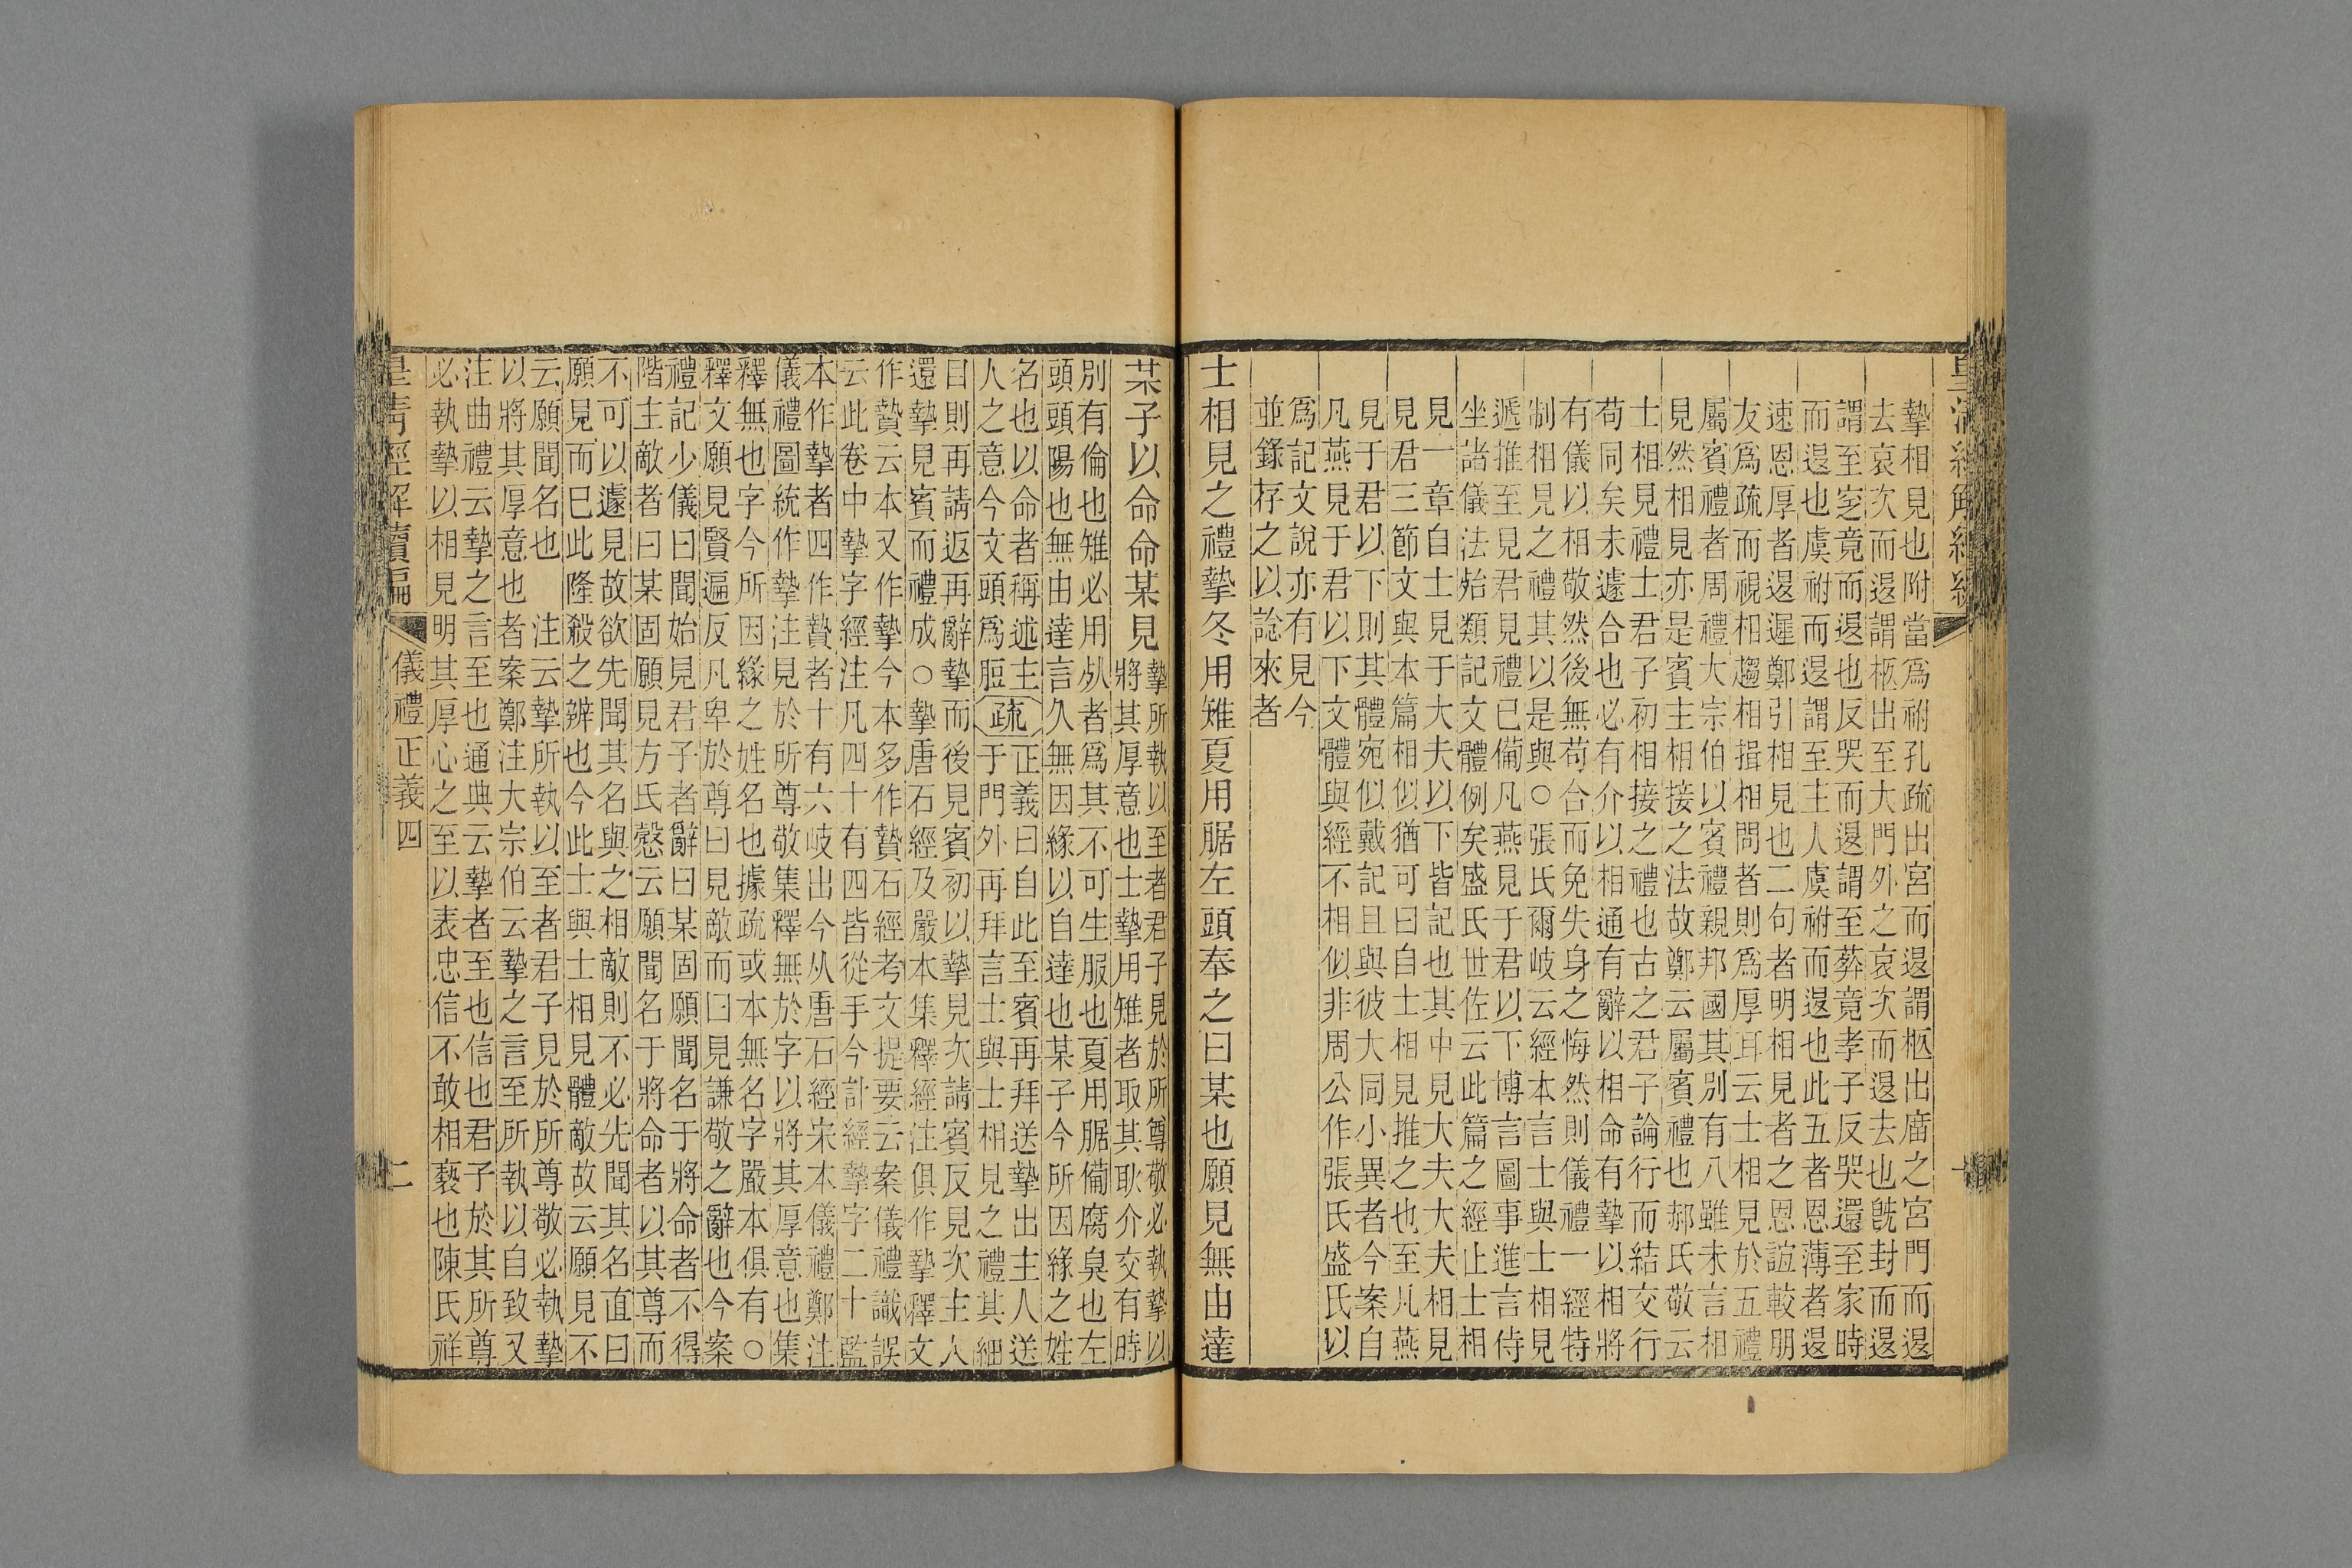 摯相見也附當爲祔孔疏出宮而退謂柩出廟之宮門而退
去哀次而退謂柩出至大門外之哀次而退去也旣封而退
謂至窆竟而退也反哭而退謂至葬竟孝子反哭還至家時
而退也虞祔而退謂至主人虞祔而退也此五者恩薄者退
速恩厚者退遲鄭引相見也二句者明相見者之恩誼較朋
友爲疏而視相趨相揖相問者則爲厚耳云士相見於五禮
屬賓禮者周禮大宗伯以賓禮親邦國其別有八雖未言相
見然相見亦是賓主相接之法故鄭云屬賓禮也郝氏敬云
士相見禮士君子初相接之禮也古之君子論行而結交行
苟同矣未遽合也必有介以相通有辭以相命有摯以相將
有儀以相敬然後無苟合而免失身之悔然則儀禮一經特
制相見之禮其以是與○張氏爾岐云經本言士與士相見
遞推至見君見禮已備凡燕見于君以下博言圖事進言侍
坐諸儀法殆類記文體例矣盛氏世佐云此篇之經止士相
見一章自士見于大夫以下皆記也其中見大夫大夫相見
見君三節文與本篇相似猶可曰自士相見推之也至凡燕
見于君以下則其體宛似戴記且與彼大同小異者今案自
凡燕見于君以下文體與經不相似非周公作張氏盛氏以
爲記文說亦有見今
並錄存之以諗來者
士相見之禮摯冬用雉夏用腒左頭奉之曰某也願見無由達
某子以命命某見
摯所執以至者君子見於所尊敬必執摯以
將其厚意也士摯用雉者取其耿介交有時
別有倫也雉必用死者爲其不可生服也夏用腒備腐臭也左
頭頭陽也無由達言久無因緣以自達也某子今所因緣之姓
名也以命者稱述主
人之意今文頭爲脰
疏
正義曰自此至賓再拜送摯出主人送
于門外再拜言士與士相見之禮其細
目則再請返再辭摯而後見賓初以摯見次請賓反見次主人
還摯見賓而禮成○摯唐石經及嚴本集釋經注俱作摯釋文
作贄云本又作摯今本多作贄石經考文提要云案儀禮識誤
云此卷中摯字經注凡四十有四皆從手今計經摯字二十監
本作摯者四作贄者十有六岐出今从唐石經宋本儀禮鄭注
儀禮圖統作摯注見於所尊敬集釋無於字以將其厚意也集
釋無也字今所因緣之姓名也據疏或本無名字嚴本俱有○
釋文願見賢遍反凡卑於尊曰見敵而曰見謙敬之辭也今案
禮記少儀曰聞始見君子者辭曰某固願聞名于將命者不得
階主敵者曰某固願見方氏慤云願聞名于將命者以其尊而
不可以遽見故欲先聞其名與之相敵則不必先聞其名直曰
願見而已此隆殺之辨也今此士與士相見體敵故云願見不
云願聞名也　注云摯所執以至者君子見於所尊敬必執摯
以將其厚意也者案鄭注大宗伯云摯之言至所執以自致又
注曲禮云摯之言至也通典云摯者至也信也君子於其所尊
必執摯以相見明其厚心之至以表忠信不敢相褻也陳氏祥
皇清經解續編
儀禮正義四
二